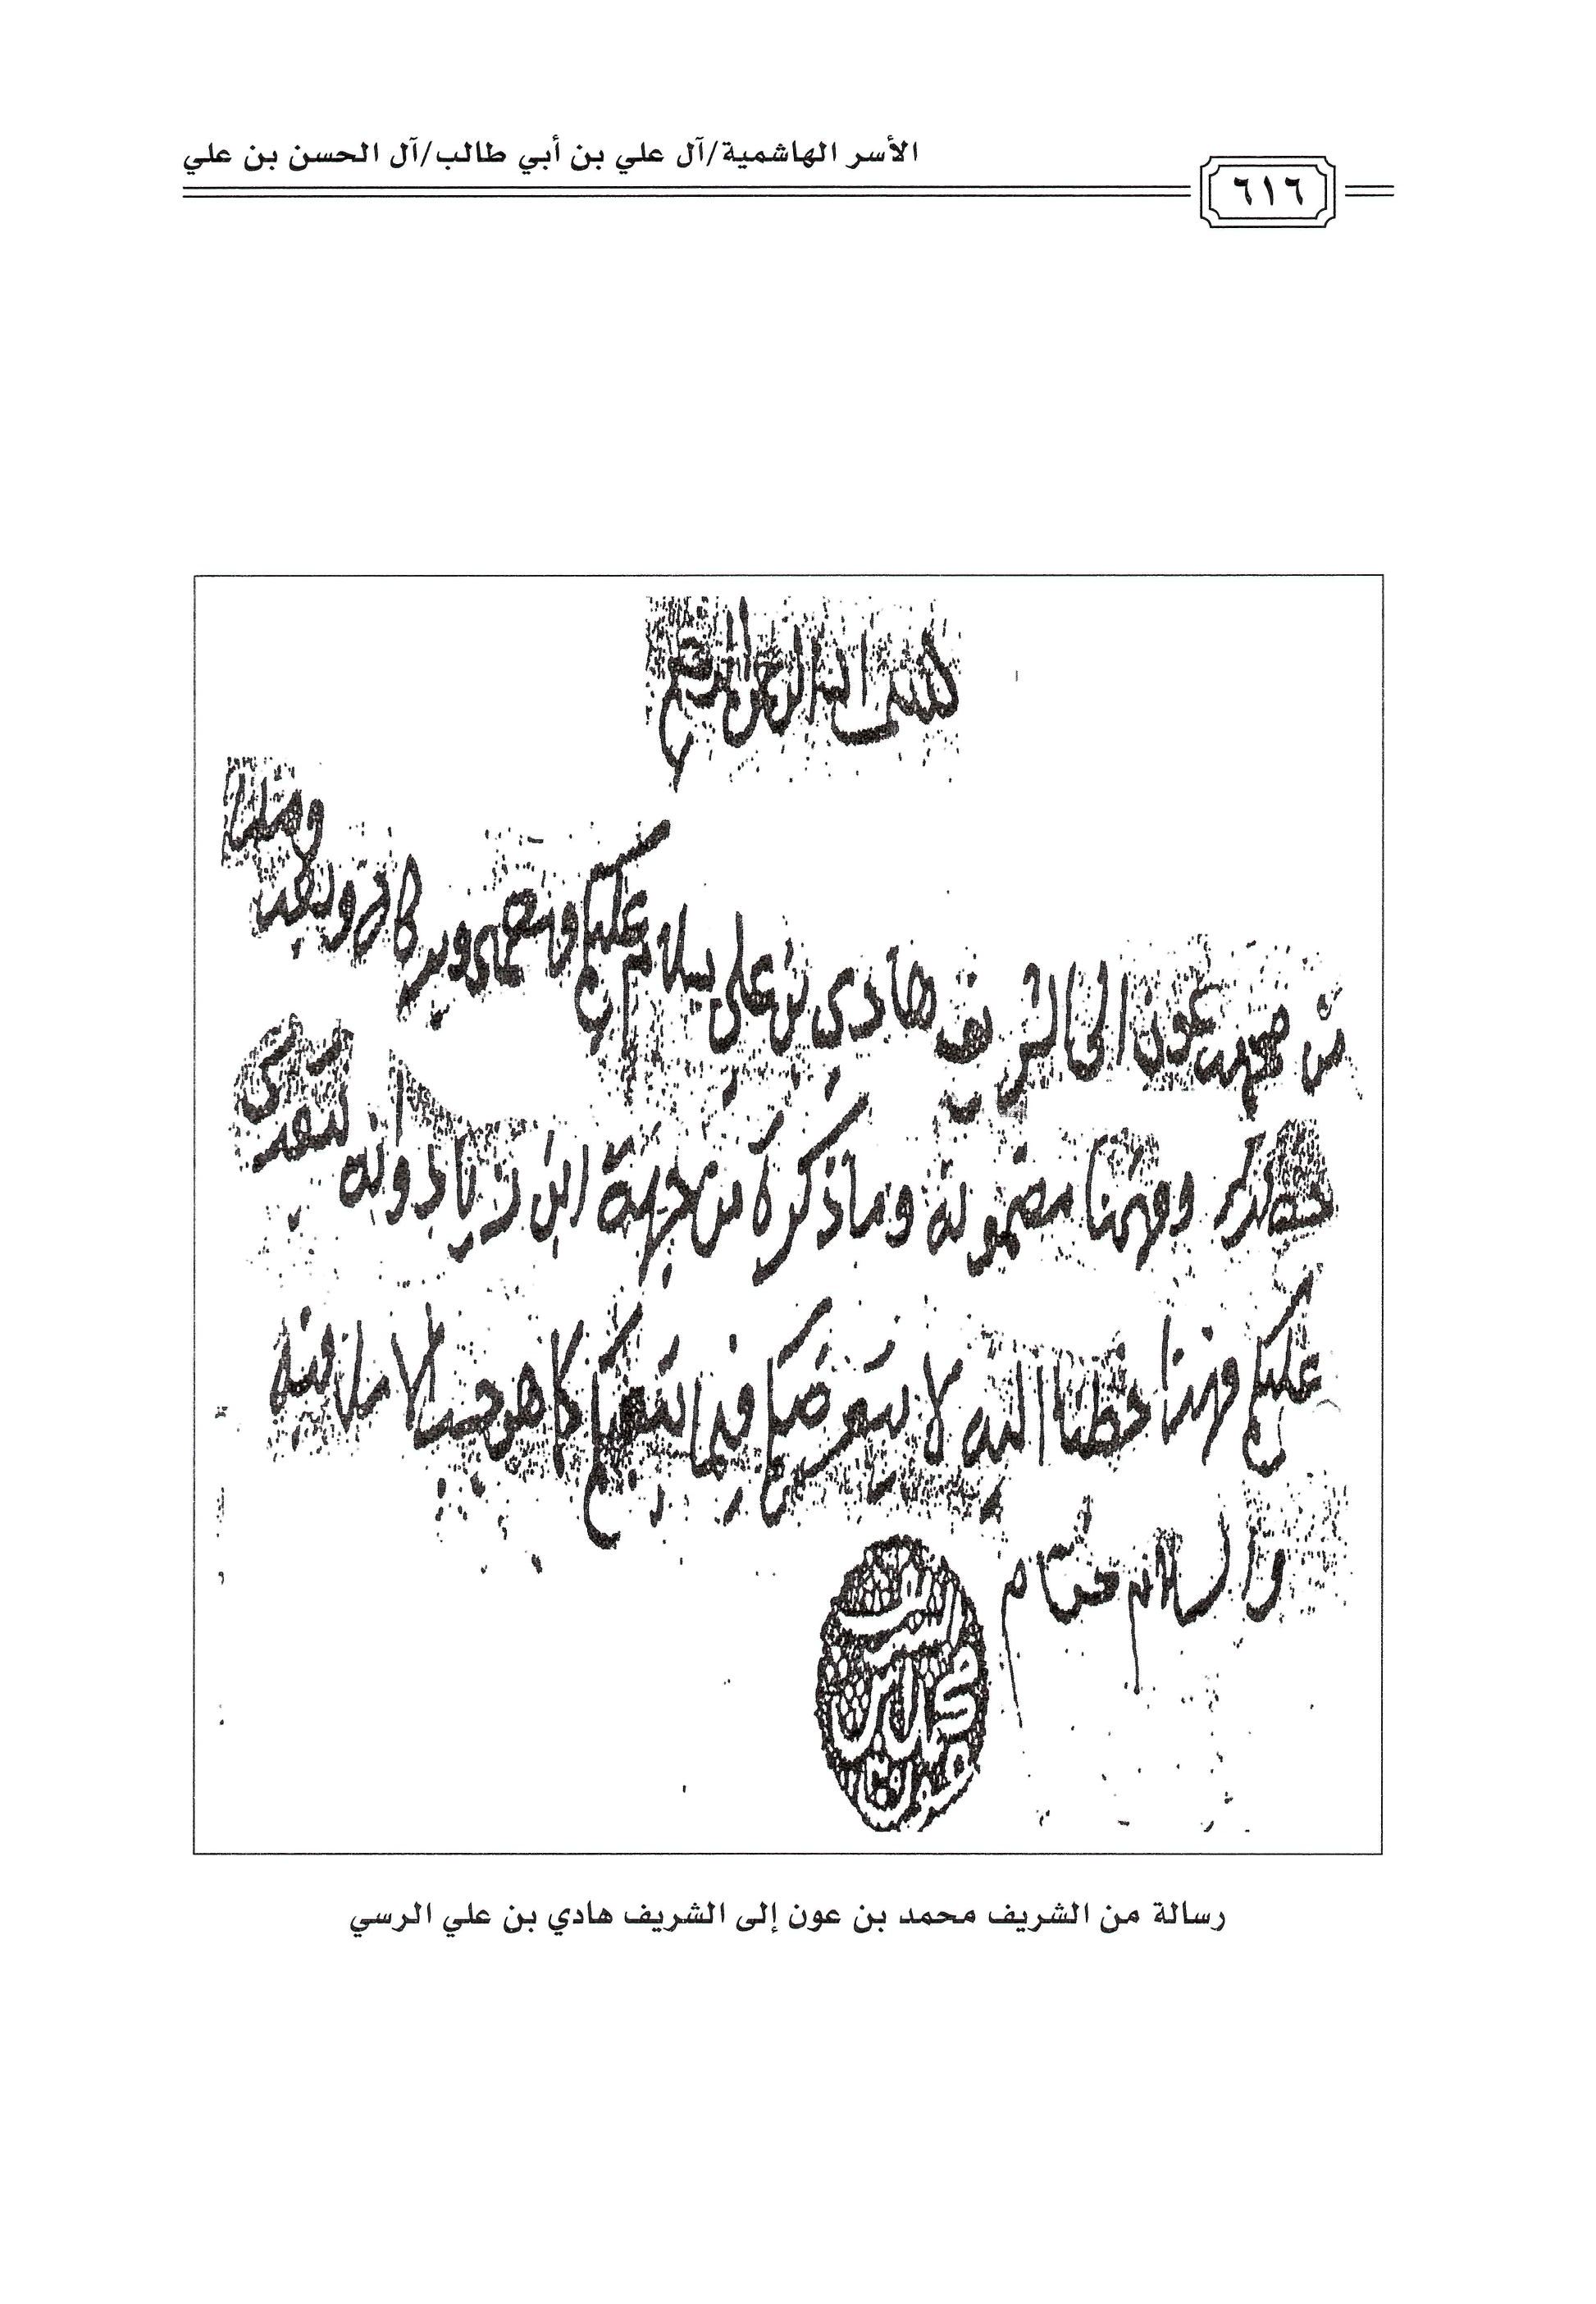 الأسر الهاشمية/آل علي بن أبي طالب/آل الحسن بن علي
٦١٦
بسم الله الرحمن الرحيم
من محمد بن عون الى الشريف هادي بن علي سلام عليكم ورحمة الله وبركاته وبعد وصلنا
خطكم وفهمنا مضمونه وما ذكرة من جهة ابن زياد وانه
عليكم فهذا خطنا اليه لا يتعرضكم فيما كما هو حسب الامل فيه
والسلام ختام
رسالة من الشريف محمد بن عون إلى الشريف هادي بن علي الرسي